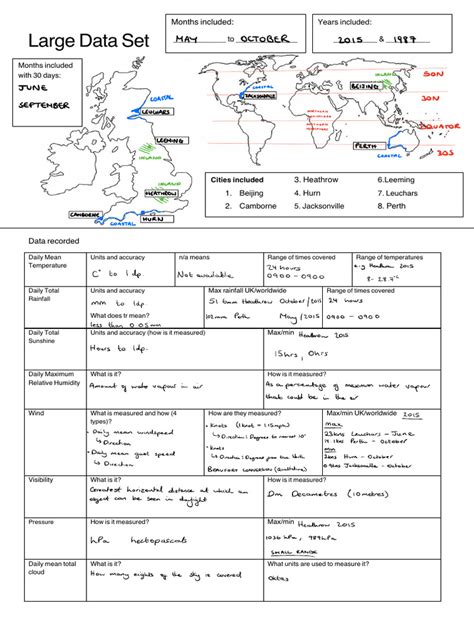 Large Data Set
Months included:
MAY to OCTOBER
Years included:
2015 & 1987
Months included
with 30 days:
JUNE
SEPTEMBER
COASTAL
LEUCHARS
LEEMING
INLAND
INLAND
HEATHROW
CAMBORNE
HURN
COASTAL
COASTAL
JACKSONVILLE
INLAND
BEIJING
PERTH
COASTAL
50N
30N
EQUATOR
30S
Cities included
1. Beijing
2. Camborne
3. Heathrow
4. Hurn
5. Jacksonville
6.Leeming
7. Leuchars
8. Perth
Data recorded
Daily Mean
Temperature
Units and accuracy
C° to 1dp.
n/a means
Not available
Range of times covered
24 hours
0900 - 0900
Range of temperatures
e.g Heathrow 2015
Daily Total
Rainfall
Units and accuracy
mm to 1dp.
What does tr mean?
less than 0.05mm
Max rainfall UK/worldwide
mm Heathrow October/2015
mm Perth May/2015
Range of times covered
24 hours
0900 - 0900
Daily Total
Sunshine
Units and accuracy (how is it measured)
Hours to 1dp.
Max/min Heathrow 2015
15hrs, 0hrs
Daily Maximum
Relative Humidity
What is it?
Amount of water vapour in air
How is it measured?
As a percentage of maximum water vapour
that could be in the air
Wind
What is measured and how (4
types)?
• Daily mean windspeed
↳ Direction
• Daily mean gust speed
↳ Direction
How are they measured?
• Knots (1knot = 1.15mph)
↳ Direction: Degrees to nearest 10°
• Knots
↳ Direction: Degrees
BEAUFORT CONVERSION (Qualitative)
Max/min UK/worldwide 2015
max
23kns Leuchars - June
Perth - October
min
2kns Hurn - October
Jacksonville - October
Visibility
What is it?
Greatest horizontal distance at which an
object can be seen in daylight
How is it measured?
Dm Decametres (10metres)
Pressure
How is it measured?
hPa hectopascals
Max/min Heathrow 2015
1036 hPa, 989hPa
SMALL RANGE
Daily mean total
cloud
What is it?
How many eights of the sky is covered
What units are used to measure it?
Oktas